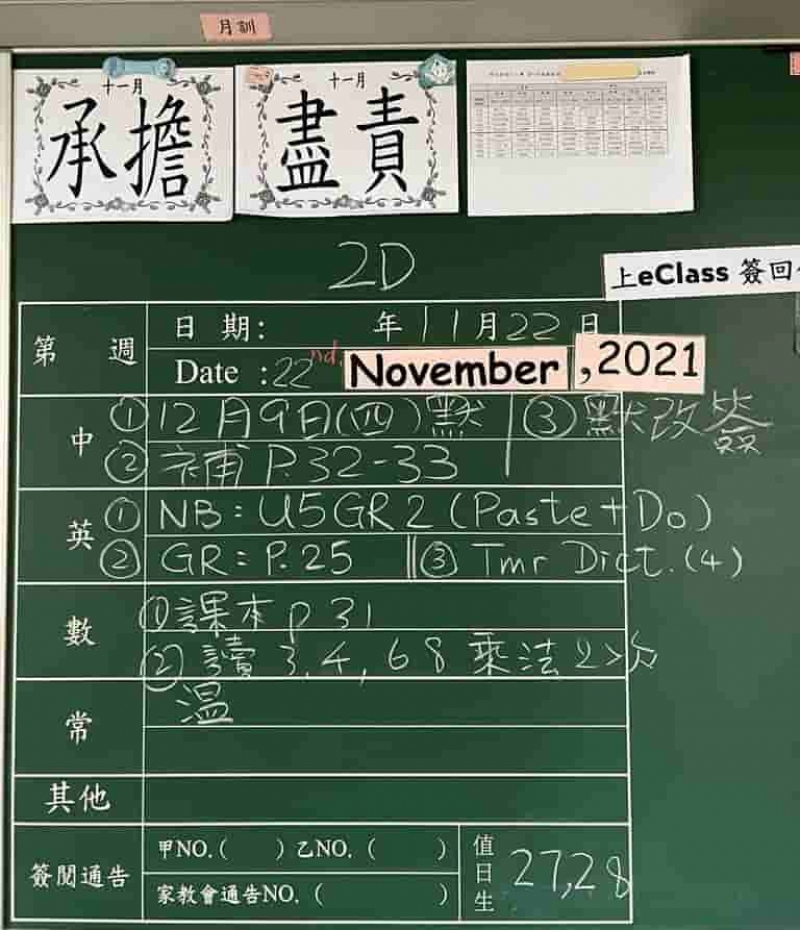 月訓
十一月
承擔
十一月
盡責
2D
上eClass 簽回
第 週
日 期: 年 11月22 日
Date :22nd. November ,2021
中
①12月9日(四)默 ③默改簽
②補 P.32-33
英
①NB: U5GR2 (Paste+Do)
②GR: P.25 ③Tmr Dict.(4)
數
①課本 p 31
②讀 3,4,6 8 乘法 2次
常
溫
其他
簽閱通告
甲NO.( ) 乙NO. ( )
家教會通告NO. ( )
值日生
27,28